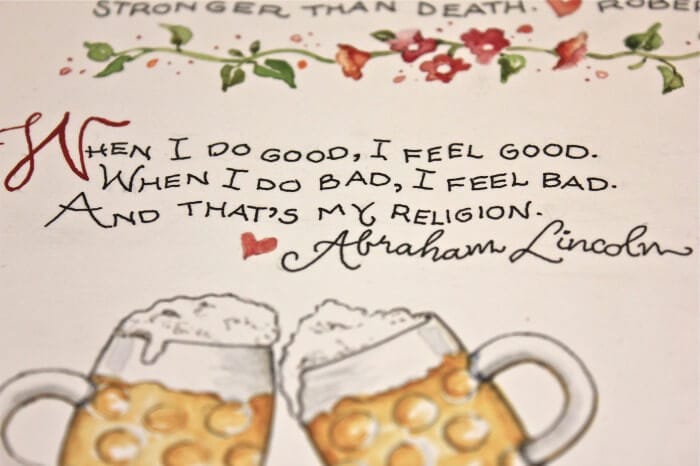 STRONGER THAN DEATH.
WHEN I DO GOOD, I FEEL GOOD.
WHEN I DO BAD, I FEEL BAD.
AND THAT'S MY RELIGION.
Abraham Lincoln